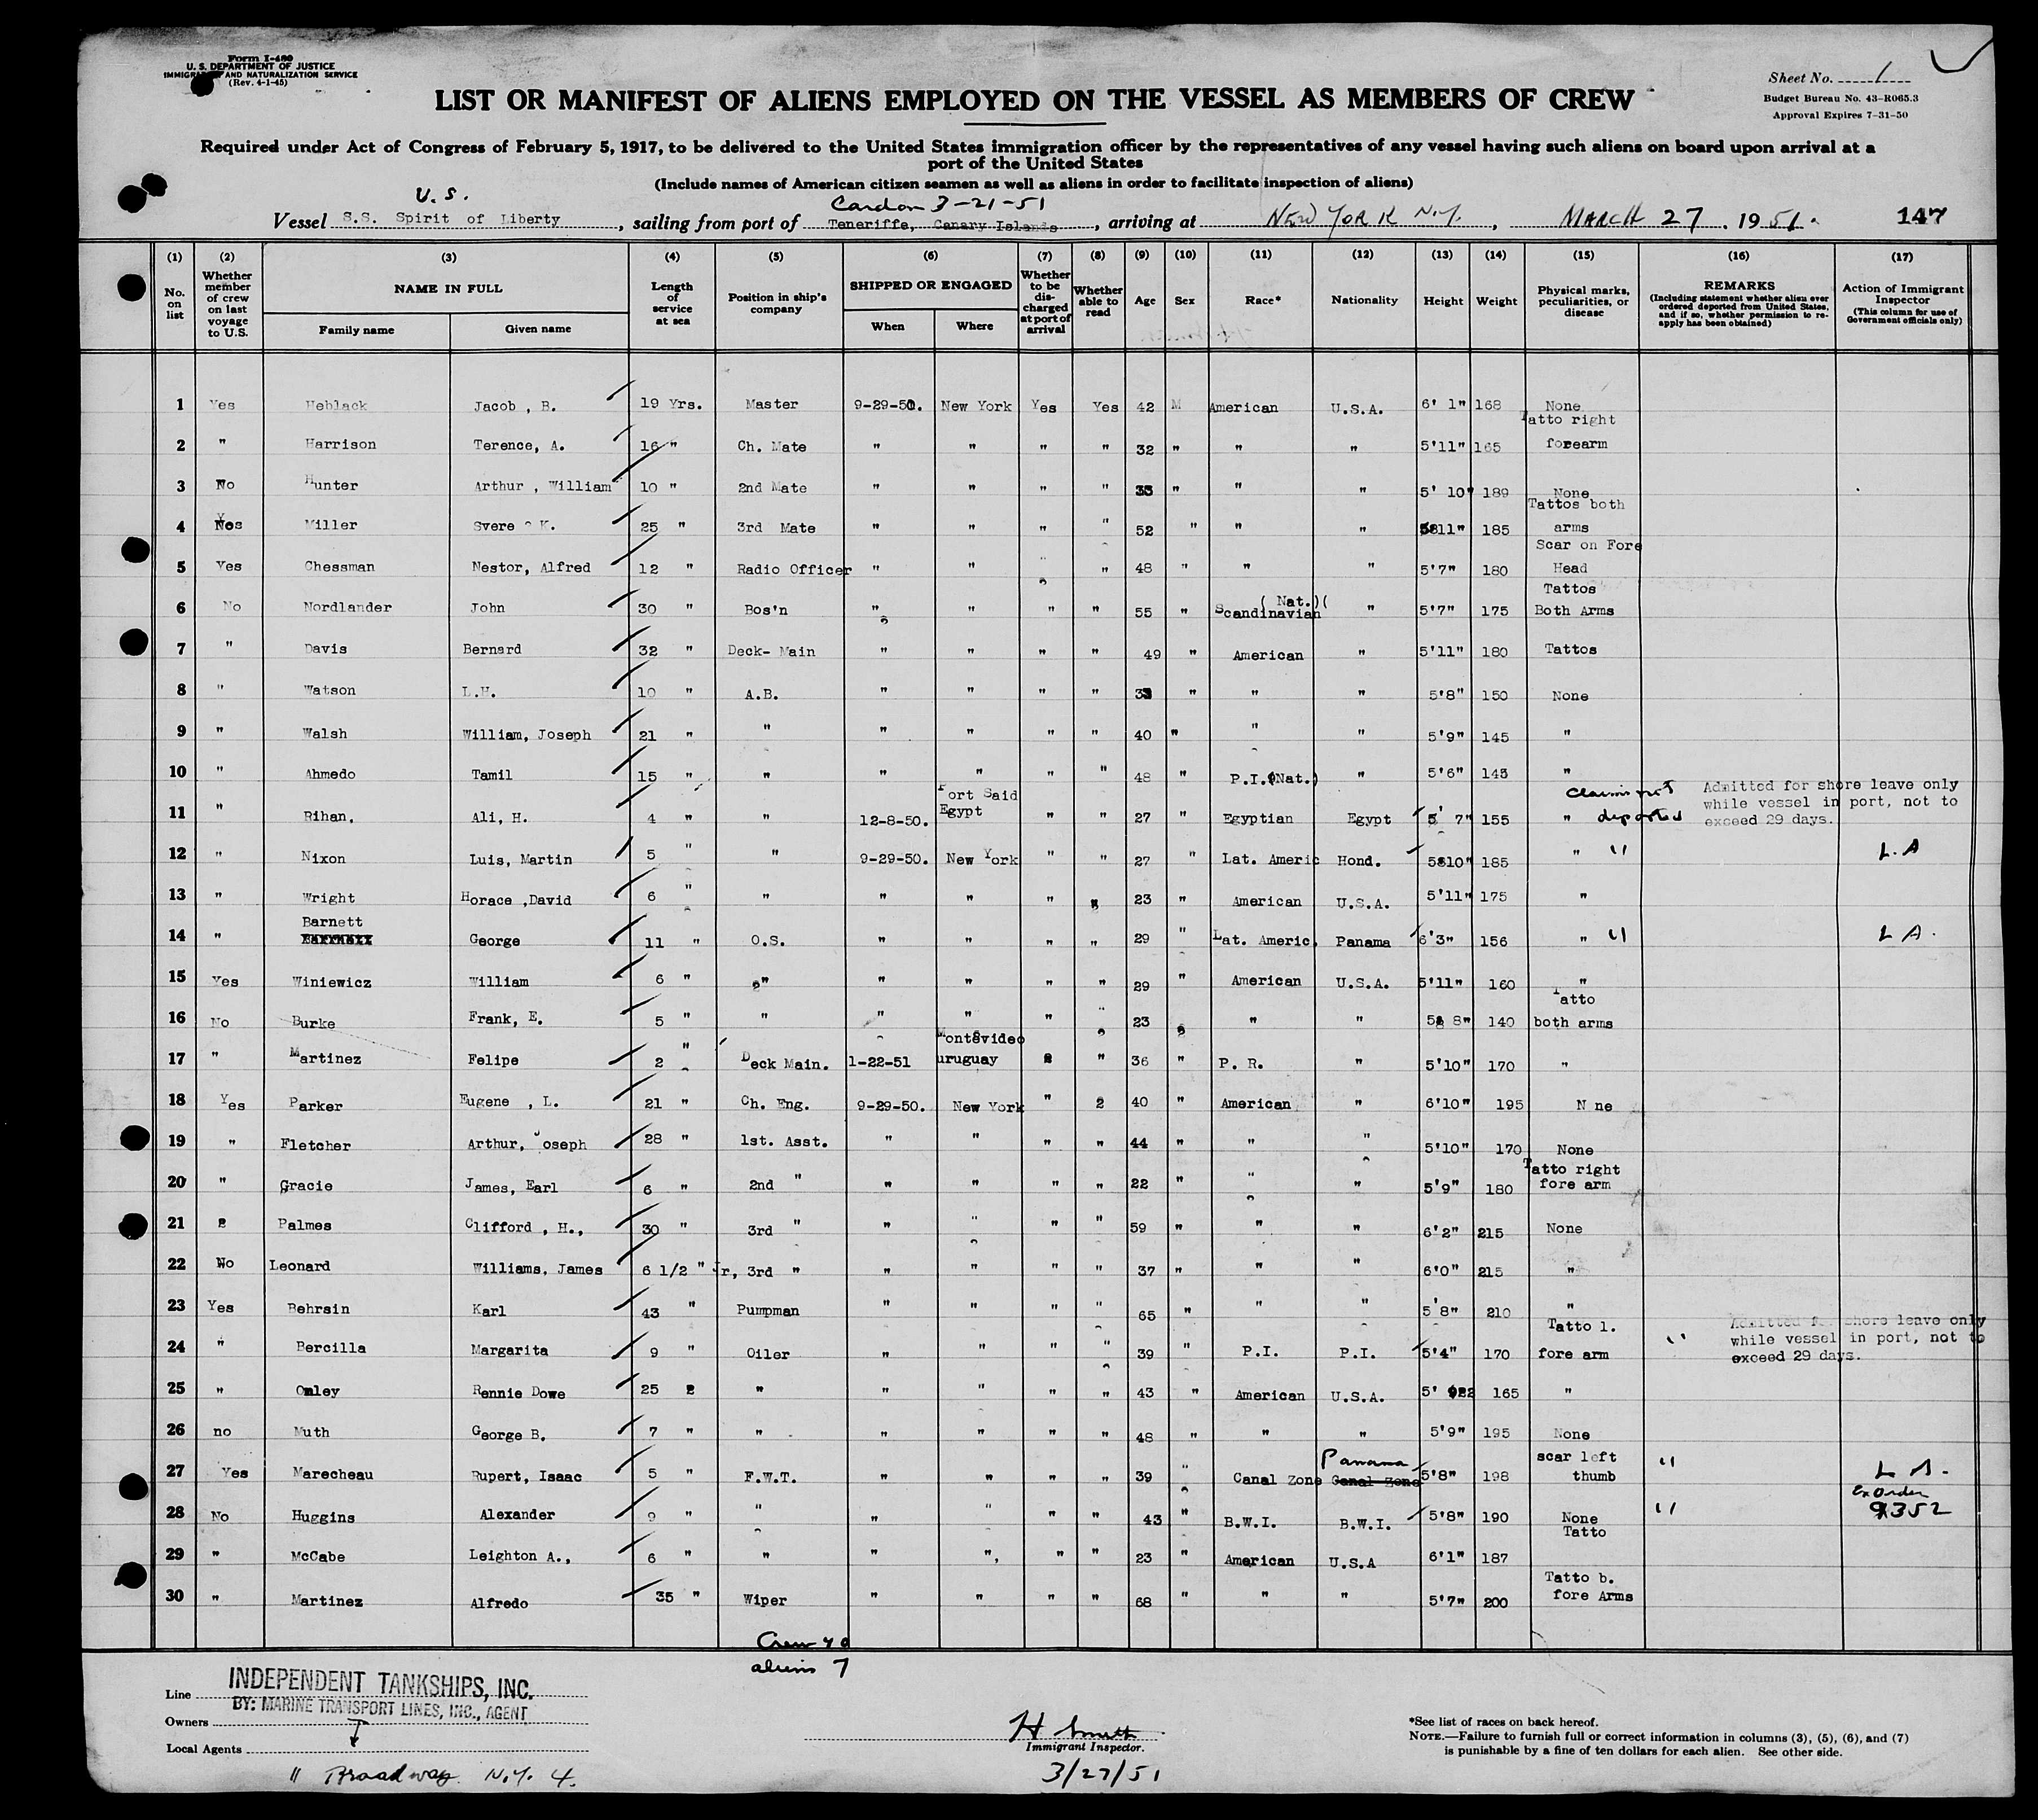 Form I-480
U. S. DEPARTMENT OF JUSTICE
IMMIGRATION AND NATURALIZATION SERVICE
(Rev. 4-1-45)
Sheet No. 1
Budget Bureau No. 43-R065.3
Approval Expires 7-31-50
LIST OR MANIFEST OF ALIENS EMPLOYED ON THE VESSEL AS MEMBERS OF CREW
Required under Act of Congress of February 5, 1917, to be delivered to the United States immigration officer by the representatives of any vessel having such aliens on board upon arrival at a
port of the United States
(Include names of American citizen seamen as well as aliens in order to facilitate inspection of aliens)
U. S. Cardon 3-21-51
Vessel S.S. Spirit of Liberty, sailing from port of Teneriffe, Canary Islands, arriving at NEW YORK N.Y., MARCH 27, 1951. 147
(1) (2) (3) (4) (5) (6) (7) (8) (9) (10) (11) (12) (13) (14) (15) (16) (17)
No. on list
Whether member of crew on last voyage to U.S.
NAME IN FULL
Family name Given name
Length of service at sea
Position in ship's company
SHIPPED OR ENGAGED
When Where
Whether to be discharged at port of arrival
Whether able to read
Age
Sex
Race*
Nationality
Height
Weight
Physical marks, peculiarities, or disease
REMARKS
(Including statement whether alien ever ordered deported from United States, and if so, whether permission to reapply has been obtained)
Action of Immigrant Inspector
(This column for use of Government officials only)
1 Yes Heblack Jacob , B. 19 Yrs. Master 9-29-50. New York Yes Yes 42 M American U.S.A. 6' 1" 168 None
2 " Harrison Terence, A. 16 " Ch. Mate " " " " 32 " " " 5'11" 165 Tatto right forearm
3 No Hunter Arthur , William 10 " 2nd Mate " " " " " " " 5' 10" 189 None
4 Yes Miller Svere K. 25 " 3rd Mate " " " " 52 " " " 185 Tattos both arms
5 Yes Chessman Nestor, Alfred 12 " Radio Officer " " " 48 " " " 5'7" 180 Scar on Fore Head
6 No Nordlander John 30 " Bos'n " " " " 55 " Scandinavian ( Nat.)( " 5'7" 175 Tattos Both Arms
7 " Davis Bernard 32 " Deck- Main " " " " 49 " American " 5'11" 180 Tattos
8 " Watson L.H. 10 " A.B. " " " " " " " 5'8" 150 None
9 " Walsh William, Joseph 21 " " " " " " 40 " " " 5'9" 145 "
10 " Ahmedo Tamil 15 " " " " " " 48 " P.I.(Nat.) " 5'6" 145 "
11 " Rihan, Ali, H. 4 " " 12-8-50. Port Said Egypt " " 27 " Egyptian Egypt 5' 7" 155 " Claims not deported Admitted for shore leave only while vessel in port, not to exceed 29 days.
12 " Nixon Luis, Martin 5 " " 9-29-50. New York " " 27 " Lat. Americ Hond. 5810" 185 " " L.A
13 " Wright Horace ,David 6 " " " " " 23 " American U.S.A. 5'11" 175 "
14 " Barnett George 11 " O.S. " " " " 29 " Lat. Americ. Panama 6'3" 156 " " L A.
15 Yes Winiewicz William 6 " " " " " " 29 " American U.S.A. 5'11" 160 "
16 No Burke Frank, E. 5 " " " " " " 23 " " 140 Tatto both arms
17 " Martinez Felipe 2 " Deck Main. 1-22-51 Montevideo uruguay " 36 " P. R. " 5'10" 170 "
18 Yes Parker Eugene , L. 21 " Ch. Eng. 9-29-50. New York " 2 40 " American " 6'10" 195 N ne
19 " Fletcher Arthur, Joseph 28 " 1st. Asst. " " " " 44 " " " 5'10" 170 None
20 " Gracie James, Earl 6 " 2nd " " " " " 22 " " " 5'9" 180 Tatto right fore arm
21 Palmes Clifford , H., 30 " 3rd " " " " " 59 " " " 6'2" 215 None
22 No Leonard Williams, James 6 1/2 " Jr, 3rd " " " " " 37 " " " 6'0" 215 "
23 Yes Behrsin Karl 43 " Pumpman " " " " 65 " " " 5'8" 210 "
24 " Bercilla Margarita 9 " Oiler " " " " 39 " P.I. P.I. 5'4" 170 Tatto l. fore arm " Admitted for shore leave only while vessel in port, not to exceed 29 days.
25 " Rennie Dowe 25 " " " " " 43 " American U.S.A. 5' 165 "
26 no Muth George B. 7 " " " " " " 48 " " " 5'9" 195 None
27 Yes Marecheau Rupert, Isaac 5 " F.W.T. " " " " 39 " Canal Zone Panama Canal Zone 5'8" 198 scar left thumb " L A.
28 No Huggins Alexander 9 " " " " " " 43 " B.W.I. B.W.I. 5'8" 190 None " Ex Order 9352
29 " McCabe Leighton A., 6 " " " ", " " 23 " American U.S.A 6'1" 187 Tatto
30 " Martinez Alfredo 35 " Wiper " " " " 68 " " " 5'7" 200 Tatto b. fore Arms
Crew 40
aliens 7
Line INDEPENDENT TANKSHIPS, INC.
BY: MARINE TRANSPORT LINES, INC., AGENT
Owners
Local Agents
11 Broadway N.Y. 4.
H Smith
Immigrant Inspector.
3/27/51
*See list of races on back hereof.
NOTE.—Failure to furnish full or correct information in columns (3), (5), (6), and (7)
is punishable by a fine of ten dollars for each alien. See other side.